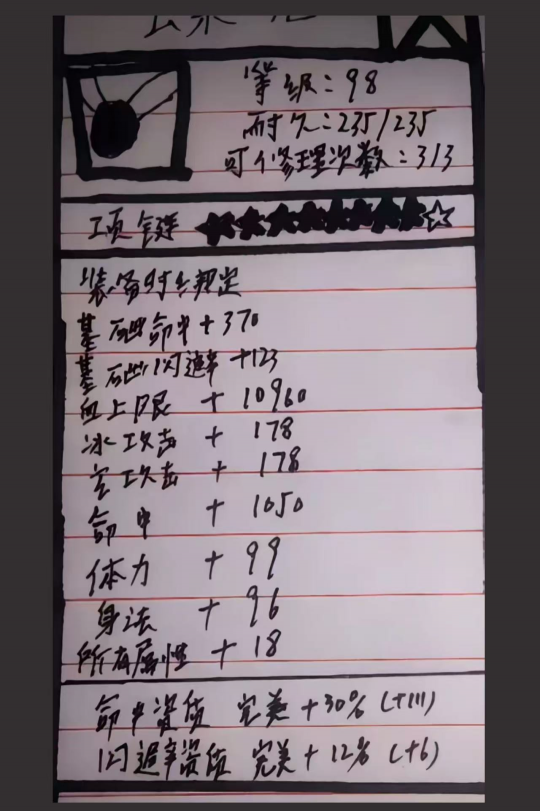 等级：98
耐久：235/235
可修理次数：3/3
项链 ★★★★★★★☆
装备时绑定
基础命中+370
基础闪避率+123
血上限 + 10960
冰攻击 + 178
玄攻击 + 178
命中 + 1050
体力 + 99
身法 + 96
所有属性 + 18
命中资质 完美+30% (+111)
闪避率资质 完美+12% (+6)